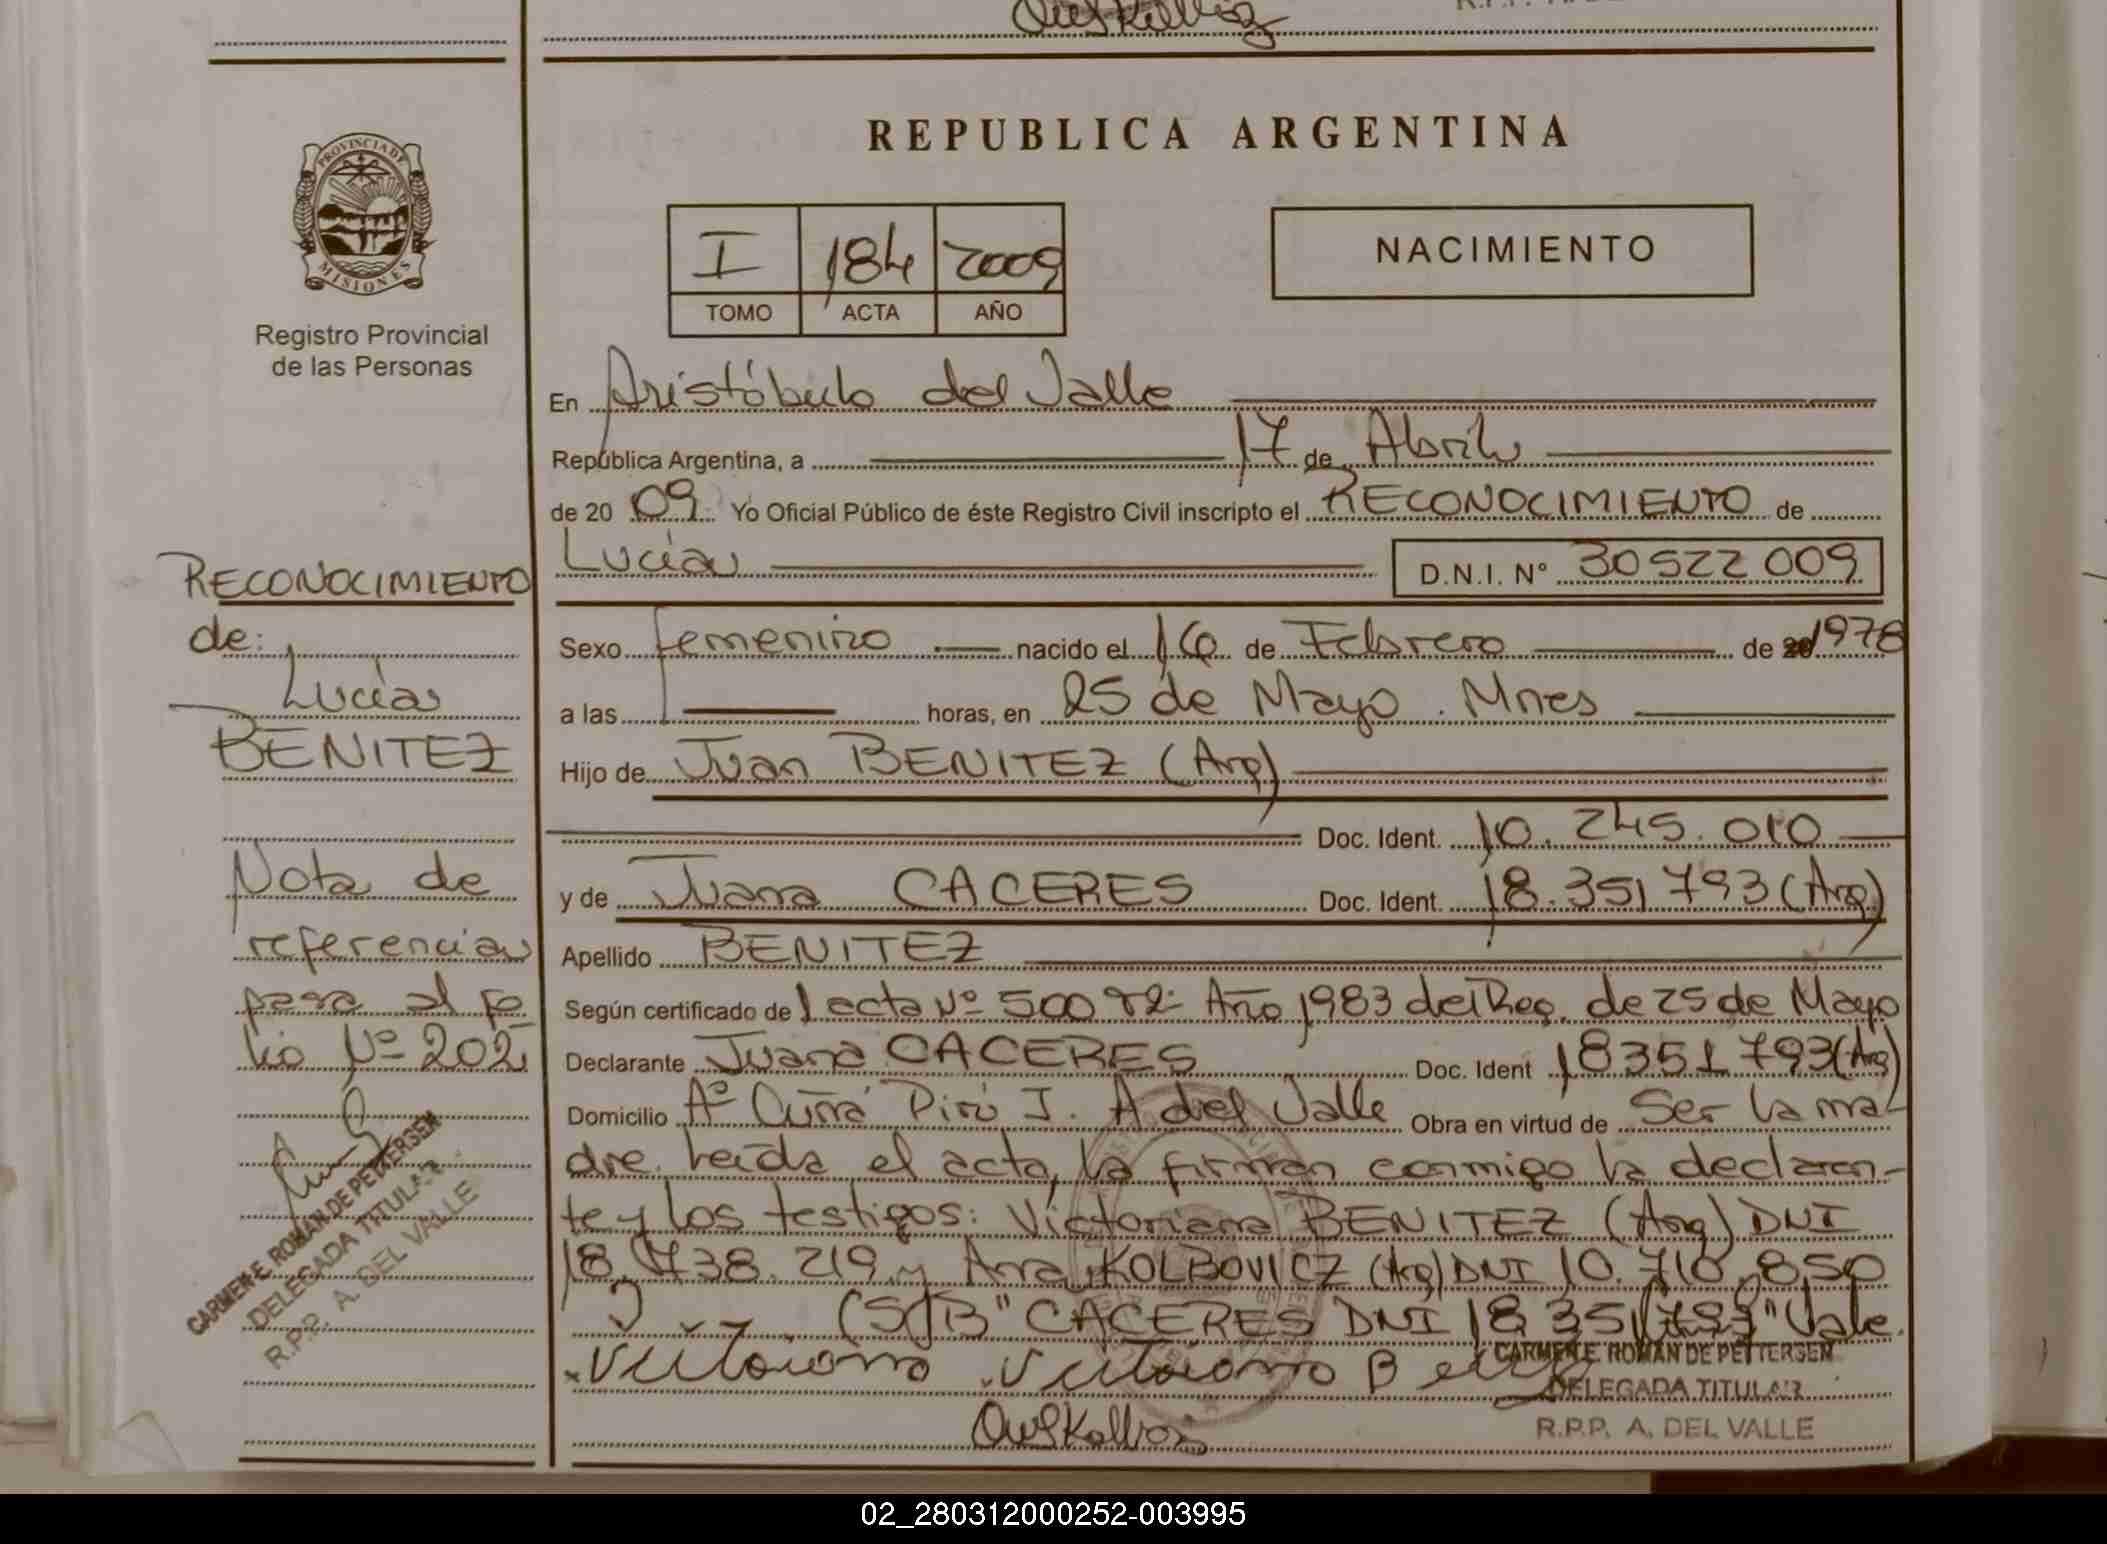 REPUBLICA ARGENTINA
PROVINCIA DE
MISIONES
Registro Provincial
de las Personas
I 184 2009
TOMO ACTA AÑO
NACIMIENTO
En Aristóbulo del Valle
República Argentina, a 17 de Abril
de 20 09 Yo Oficial Público de éste Registro Civil inscripto el RECONOCIMIENTO de
Lucía D.N.I. Nº 30522009
Sexo femenino nacido el 16 de Febrero de 20 1978
a las horas, en 25 de Mayo. Mnes
Hijo de Juan BENITEZ (Arg)
Doc. Ident. 10.245.010
y de Juana CACERES Doc. Ident. 18.351793 (Arg)
Apellido BENITEZ
Según certificado de 1 acta Nº 500 Año 1983 del Reg. de 25 de Mayo
Declarante Juana CACERES Doc. Ident 18351793 (Arg)
Domicilio Aº Cuña Pirú I. A. del Valle Obra en virtud de Ser la ma-
dre. Leída el acta, la firman conmigo la declaran-
te y los testigos: Victoriana BENITEZ (Arg) DNI
18.738.219 y Ana KOLBOVICZ (Arg) DNI 10.710.850
(S)B "CACERES DNI 18.351793" Vale.
Victoriana Victoriana
CARMEN E. ROMAN DE PETTERSEN
DELEGADA TITULAR
R.P.P. A. DEL VALLE
RECONOCIMIENTO
de:
Lucía
BENITEZ
Nota de
referencia
pasa al fo
lio Nº 202
CARMEN E. ROMAN DE PETTERSEN
DELEGADA TITULAR
R.P.P. A. DEL VALLE
02_280312000252-003995